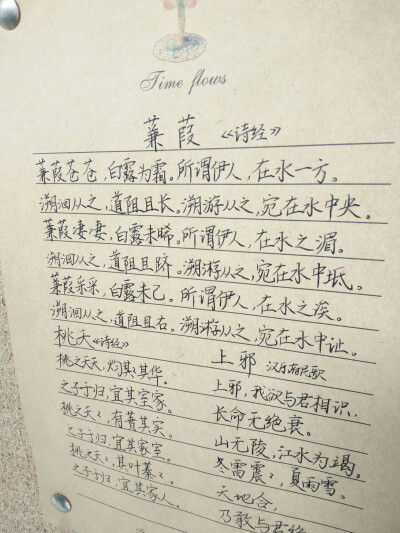 Time flows
蒹葭 《诗经》
蒹葭苍苍，白露为霜。所谓伊人，在水一方。
溯洄从之，道阻且长。溯游从之，宛在水中央。
蒹葭凄凄，白露未晞。所谓伊人，在水之湄。
溯洄从之，道阻且跻。溯游从之，宛在水中坻。
蒹葭采采，白露未已。所谓伊人，在水之涘。
溯洄从之，道阻且右。溯游从之，宛在水中沚。
桃夭《诗经》
桃之夭夭，灼其其华。
之子于归，宜其室家。
桃之夭々，有蕡其实。
之子于归，宜其家室。
桃之夭々，其叶蓁々。
之子于归，宜其家人。
上邪 汉乐府民歌
上邪，我欲与君相识，
长命无绝衰。
山无陵，江水为竭。
冬雷震々，夏雨雪。
天地合，
乃敢与君绝